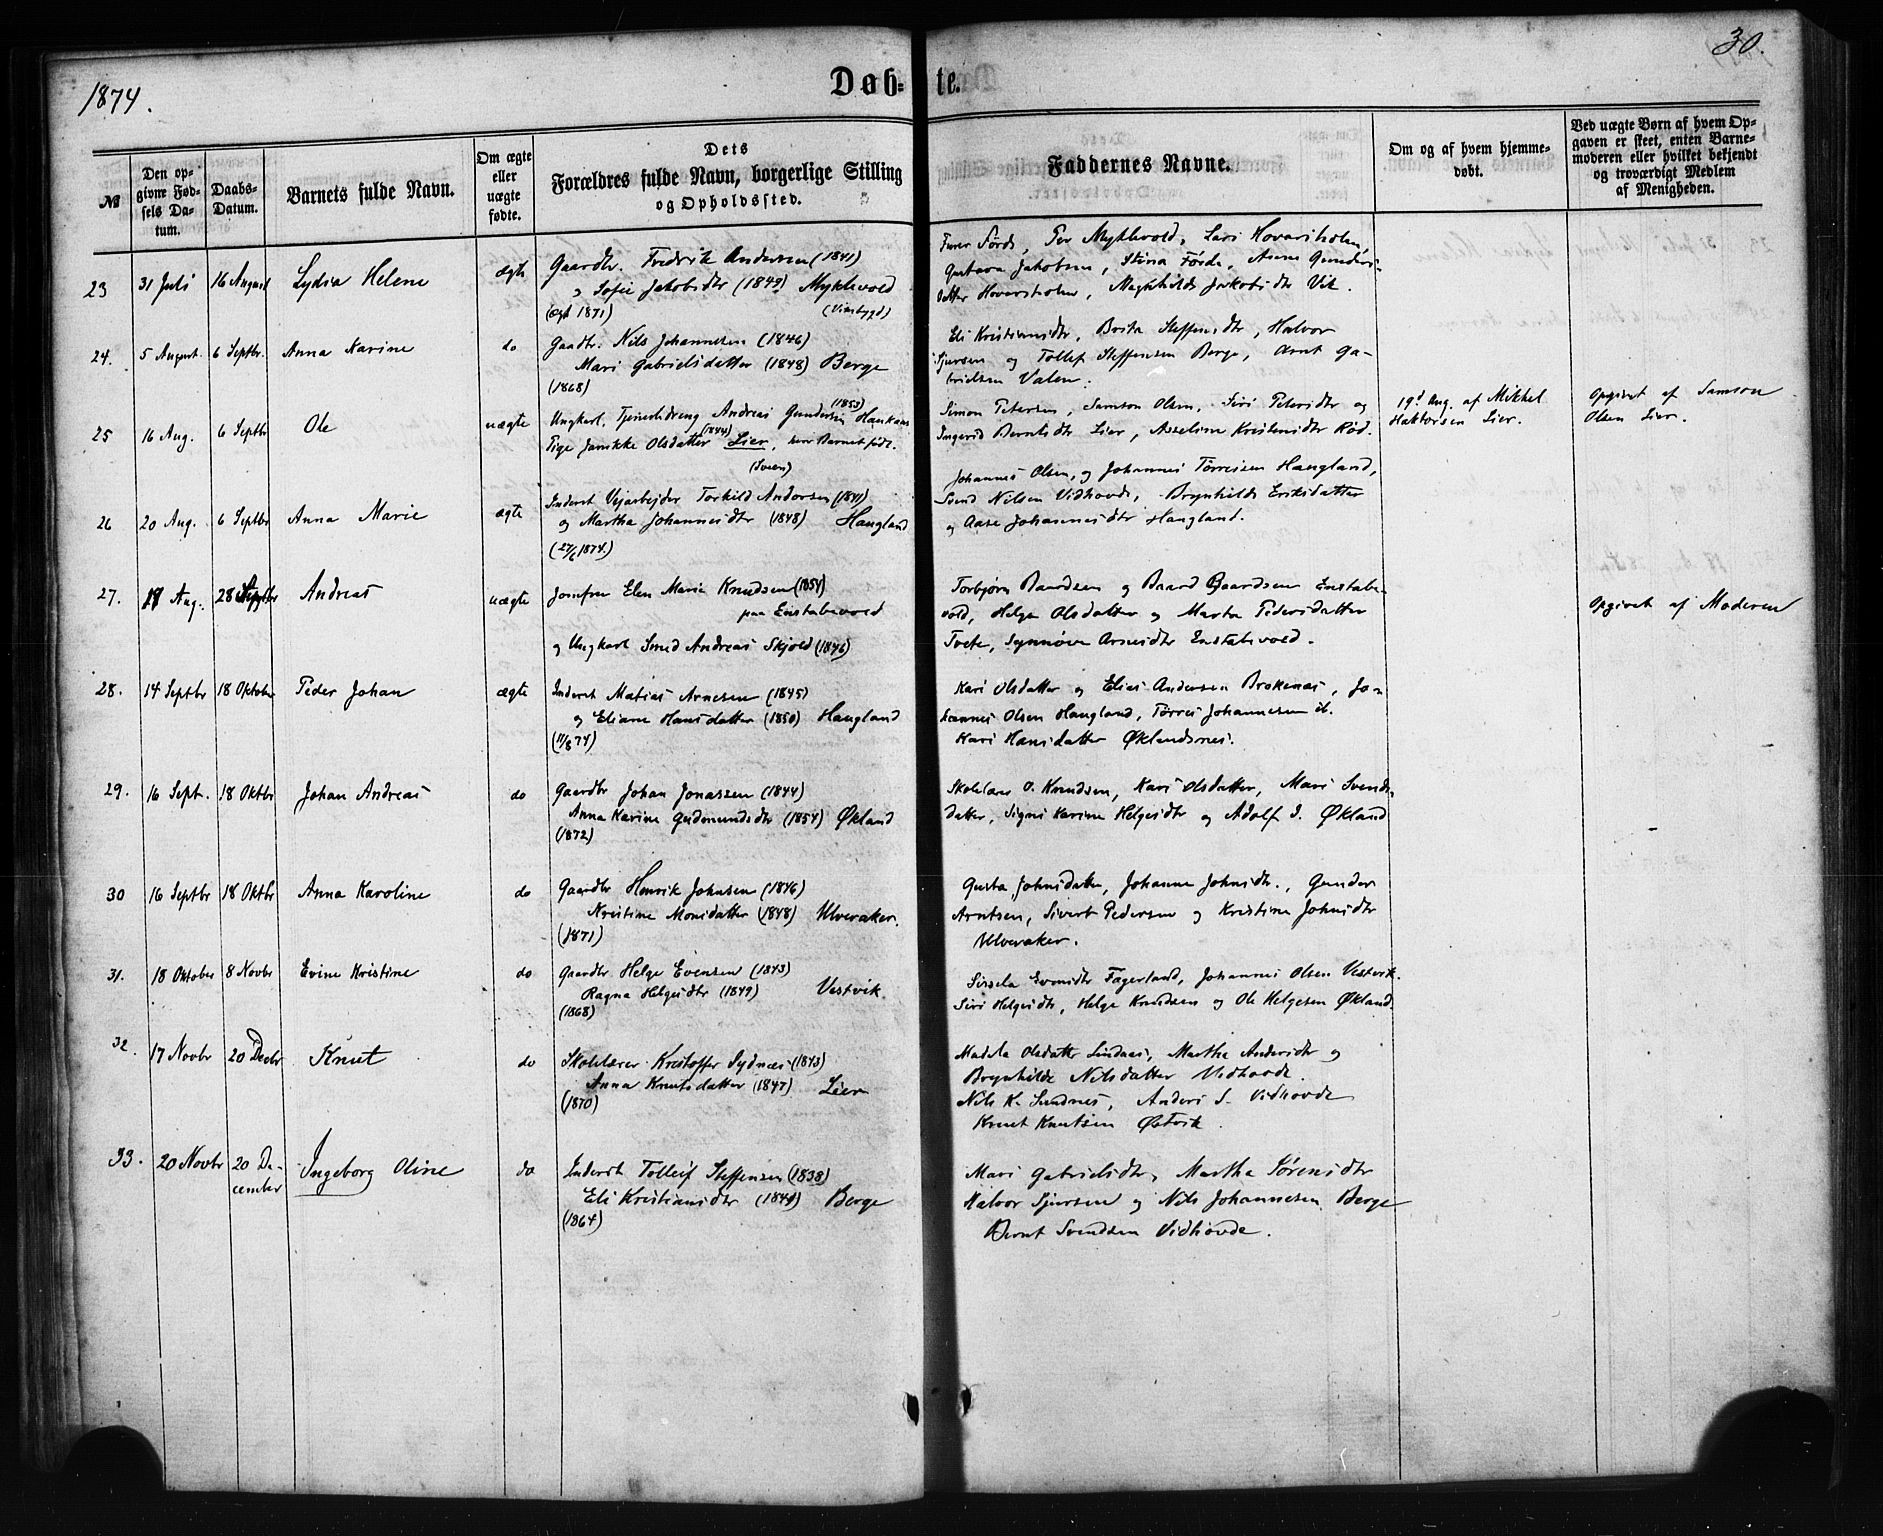 1874.
Døb-
te.
30.
№
Den op-
givne Fød-
sels Da-
tum.
Daabs-
Datum.
Barnets fulde Navn.
Om ægte
eller
uægte
fødte.
Dets
Forældres fulde Navn, borgerlige Stilling
og Opholdssted.
Faddernes Navne.
Om og af hvem hjemme-
døbt.
Ved uægte Børn af hvem Op-
gaven er skeet, enten Barne-
moderen eller hvilket bekjendt
og troværdigt Medlem
af Menigheden.
23
31 Juli
16 August
Lydia Helene
ægte
Gaardbr. Fredrik Andersen (1841)
og Sofie Jakobsdtr (1849) Myklevold
(ægt 1871)
(Vinsbygd)
Førde, Per Myklevold, Lars Hovarsholm,
Gustava Jakobsen, Stina Førde, Anna Gunders-
datter Hovarsholm, Magnhilde Jakobsdtr Vik.
24.
5 August.
6 Septbr.
Anna Karine
do
Gaardbr. Nils Johannesen (1846)
Mari Gabrielsdatter (1848) Berge
(1868)
Eli Kristiansdtr, Brita Steffensdtr, Halvor
Sjursen og Tollef Steffensen Berge, Arnt Ga-
brielsen Valen.
25
16 Aug.
6 Septbr
Ole
uægte
(1853)
Ungkarl, Tjenestedreng Andreas Gundersen
Pige Jannikke Olsdatter (1844) Lier, hvor Barnet født.
(Sveen)
Simon Petersen, Samson Olsen, Siri Petersdtr og
Ingerid Berntsdtr Lier, Asseline Kristensdtr Rød.
19d Aug. af Mikkel
Haktorsen Lier.
Opgivet af Samson
Olsen Lier.
26
20 Aug.
6 Septbr
Anna Marie
ægte
Inderst Vejarbejder Torkild Andersen (1841)
og Martha Johannesdtr (1848) Haugland
(27/6 1874.)
Johannes Olsen, og Johannes Tørresen Haugland,
Svend Nilsen Vidhovde, Brynhilde Eriksdatter
og Aase Johannesdtr Haugland.
27.
Aug.
28
Andreas
uægte
Jomfru Elen Marie Knudsen (1854)
paa Enstabevold
og Ungkarl Smed Andreas Skjold (1846)
Torbjørn Baardsen og Baard Baardsen Enstabe-
vold, Helga Olsdatter og Marta Pedersdatter
Tveite, Synnøve Arnesdtr Enstabevold.
Opgivet af Moderen
28.
14 Septbr
18 Oktober
Peder Johan
ægte
Inderst Matias Arnesen (1845)
og Eliane Hansdatter (1850) Haugland
(11/8 74)
Kari Olsdatter og Elias Andersen Brokenes, Jo-
hannes Olsen Haugland, Tørres Johannesen ib.
Kari Hansdatter Øklandsnes.
29.
16 Sept.
18 Oktbr
Johan Andreas
do
Gaardbr Johan Jonassen (1844)
Anna Karine Gudmundsdtr (1854) Økland
(1872)
Skolelærer O. Knudsen, Kari Olsdatter, Mari Svends-
datter, Signi Karine Helgesdtr og Adolf J. Økland
30
16 Septbr
18 Oktbr
Anna Karoline
do
Gaardbr Henrik Johnsen (1846)
Kristine Monsdatter (1848) Ulveraker.
(1871)
Gusta Johnsdatter, Johanne Johnsdtr., Gunder
Arntsen, Sivert Pedersen og Kristine Johnsdtr
Ulveraker.
31.
18 Oktober
8 Novbr
Evine Kristine
do
Gaardbr. Helge Evensen (1843)
Ragna Helgesdtr (1849) Vestvik.
(1868)
Sissela Evensdtr Fagerland, Johannes Olsen Vestvik.
Siri Helgesdtr, Helge Knudsen og Ole Helgesen Økland.
32.
17 Novbr
20 Decbr
Knut
do
Skolelærer Kristoffer Sydnes (1843)
Anna Knutsdatter (1847) Lier
(1870)
Madela Olsdatter Sundnes, Martha Andersdtr og
Brynhilde Nilsdatter Vidhovde.
Nils K. Sundnes, Anders S. Vidhovde
Knut Knutsen Østvik.
33.
20 Novbr
20 De-
cember
Ingeborg Oline
do
Inderst Tolleif Steffensen (1838)
Eli Kristiansdtr (1844) Berge
(1864)
Mari Gabrielsdtr, Martha Sørensdtr
Halvor Sjursen og Nils Johannesen Berge
Bernt Svendsen Vidhovde.